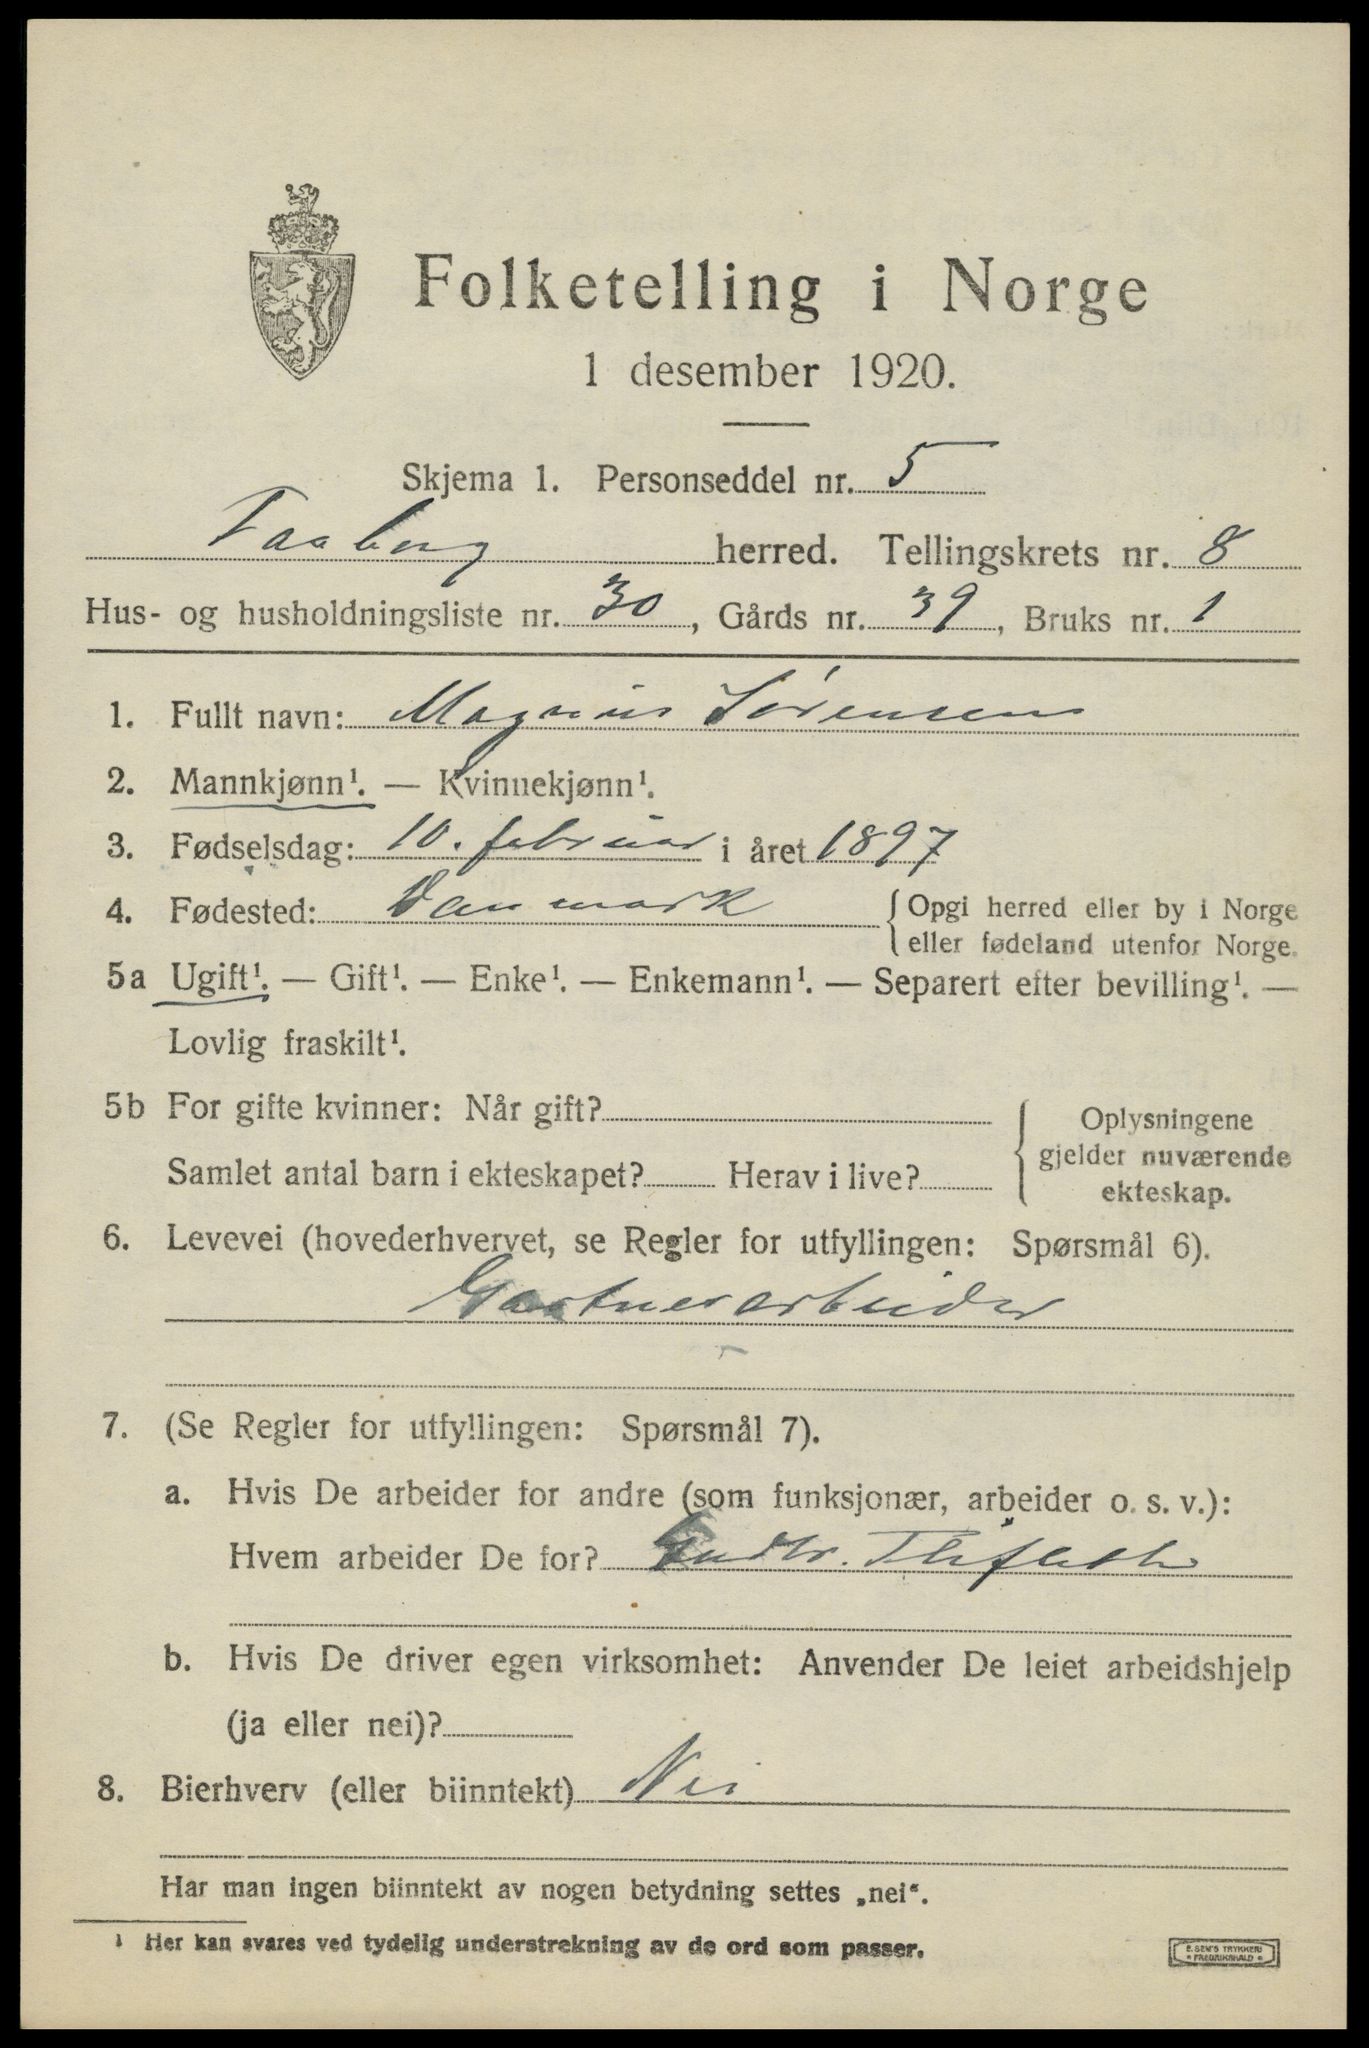 Folketelling i Norge
1 desember 1920.
Skjema 1. Personseddel nr. 5
Faaberg herred. Tellingskrets nr. 8
Hus- og husholdningsliste nr. 30, Gårds nr. 39, Bruks nr. 1
1. Fullt navn: Magnus Sörensen
2. Mannkjønn¹. — Kvinnekjønn¹.
3. Fødselsdag: 10. februar i året 1897
4. Fødested: Danmark {Opgi herred eller by i Norge
eller fødeland utenfor Norge.
5a Ugift¹. — Gift¹. — Enke¹. — Enkemann¹. — Separert efter bevilling¹. —
Lovlig fraskilt¹.
5b For gifte kvinner: Når gift?
Samlet antal barn i ekteskapet? Herav i live?
Oplysningene
gjelder nuværende
ekteskap.
6. Levevei (hovederhvervet, se Regler for utfyllingen: Spørsmål 6).
Gartnerarbeider
7. (Se Regler for utfyllingen: Spørsmål 7).
a. Hvis De arbeider for andre (som funksjonær, arbeider o. s. v.):
Hvem arbeider De for? Gudbr.
b. Hvis De driver egen virksomhet: Anvender De leiet arbeidshjelp
(ja eller nei)?
8. Bierhverv (eller biinntekt) Nei
Har man ingen biinntekt av nogen betydning settes „nei".
¹ Her kan svares ved tydelig understrekning av de ord som passer.
E. SEM'S TRYKKERI
• FREDRIKSHALD •